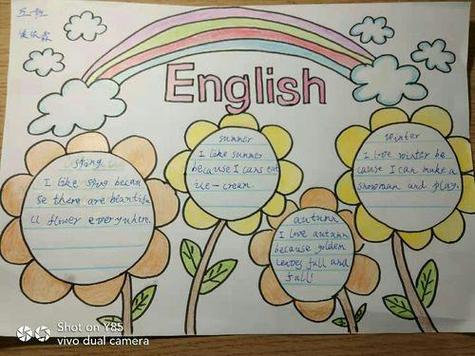 English
spring
I like spring becau
se there are beautifu
ll flower everywhere.
summer
I like summer
because I cans eat
ice-cream.
autumn
I love autumn
because golden
leaves fall and
fall!
winter
I love winter be
cause I can make a
snowman and play.
Shot on Y85
vivo dual camera